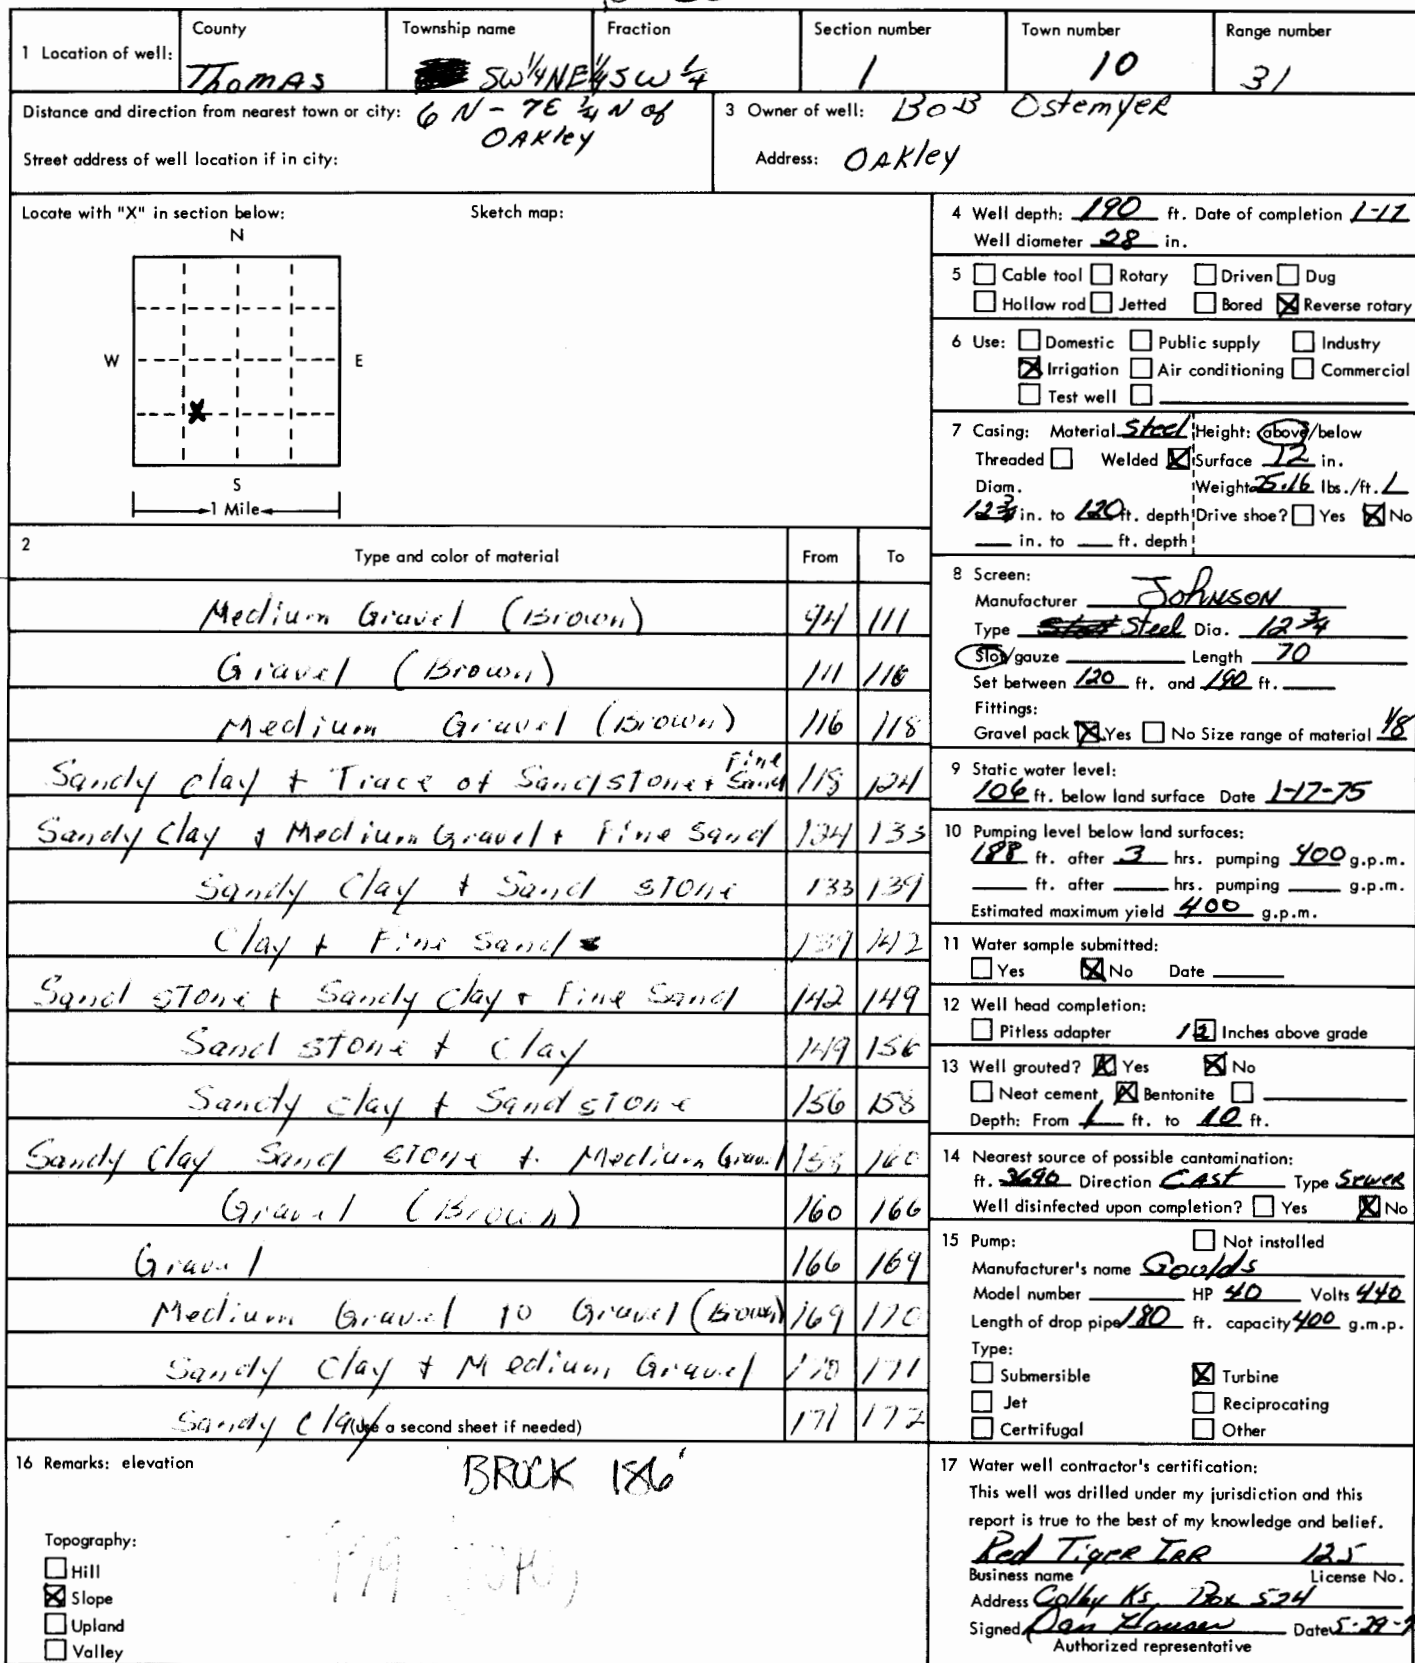 County Township name Fraction Section number Town number Range number
1 Location of well: Thomas SW 1/4 NE 1/4 SW 1/4 1 10 31
Distance and direction from nearest town or city: 6 N - 7E 1/4 N of
OAKley
Street address of well location if in city:
3 Owner of well: BOB Ostemyer
Address: OAKley
Locate with "X" in section below: Sketch map:
N
W E
X
S
1 Mile
2 Type and color of material From To
Medium Gravel (Brown) 94 111
Gravel (Brown) 111 116
Medium Gravel (Brown) 116 118
Sandy clay + Trace of Sandstone + Fine Sand 118 124
Sandy Clay + Medium Gravel + Fine Sand 124 133
Sandy Clay + Sand stone 133 139
Clay + Fine Sand 139 142
Sand stone + Sandy clay + Fine Sand 142 149
Sand stone + Clay 149 156
Sandy clay + Sand stone 156 158
Sandy Clay Sand stone + Medium Gravel 158 160
Gravel (Brown) 160 166
Gravel 166 169
Medium Gravel to Gravel (Brown) 169 170
Sandy Clay + Medium Gravel 170 171
Sandy Clay (use a second sheet if needed) 171 172
16 Remarks: elevation BROCK 186'
Topography:
Hill
X Slope
Upland
Valley
4 Well depth: 190 ft. Date of completion 1-17
Well diameter 28 in.
5 Cable tool Rotary Driven Dug
Hollow rod Jetted Bored X Reverse rotary
6 Use: Domestic Public supply Industry
X Irrigation Air conditioning Commercial
Test well
7 Casing: Material Steel Height: above/below
Threaded Welded X Surface 12 in.
Diam. Weight 25.16 lbs./ft.
12 3/4 in. to 120 ft. depth Drive shoe? Yes X No
in. to ft. depth
8 Screen:
Manufacturer JOHNSON
Type Steel Dia. 12 3/4
Slot/gauze Length 70
Set between 120 ft. and 190 ft.
Fittings:
Gravel pack X Yes No Size range of material 1/8
9 Static water level:
106 ft. below land surface Date 1-17-75
10 Pumping level below land surfaces:
188 ft. after 3 hrs. pumping 400 g.p.m.
ft. after hrs. pumping g.p.m.
Estimated maximum yield 400 g.p.m.
11 Water sample submitted:
Yes X No Date
12 Well head completion:
Pitless adapter 12 Inches above grade
13 Well grouted? X Yes X No
Neat cement X Bentonite
Depth: From 1 ft. to 10 ft.
14 Nearest source of possible cantamination:
ft. 3690 Direction EAST Type Sewer
Well disinfected upon completion? Yes X No
15 Pump: Not installed
Manufacturer's name Goulds
Model number HP 40 Volts 440
Length of drop pipe 180 ft. capacity 400 g.m.p.
Type:
Submersible X Turbine
Jet Reciprocating
Certrifugal Other
17 Water well contractor's certification:
This well was drilled under my jurisdiction and this
report is true to the best of my knowledge and belief.
Red Tiger IRR 125
Business name License No.
Address Colby Ks. Box 524
Signed Dan Hauser Date 5-29-7
Authorized representative